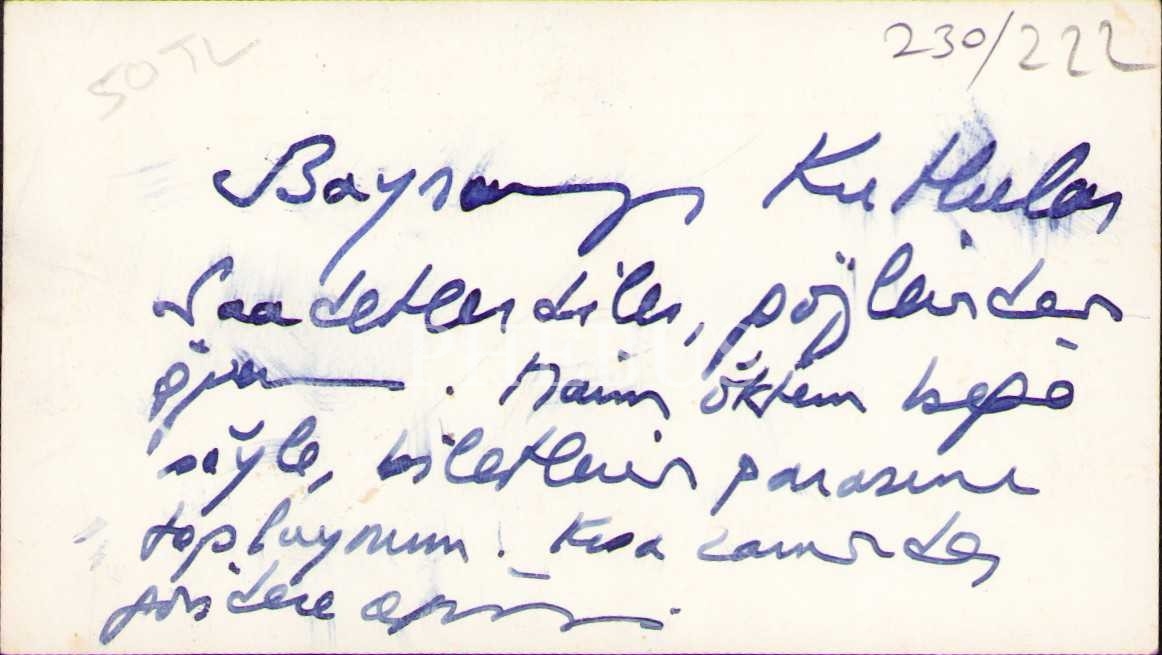 50 TL
230/222
Bayramını Kutlular
Saadetler diler, gözlerinden
öperim. Naim Öktem beye
söyle, biletlerin parasını
topluyorum. Kısa zamanda
göndereceğim.